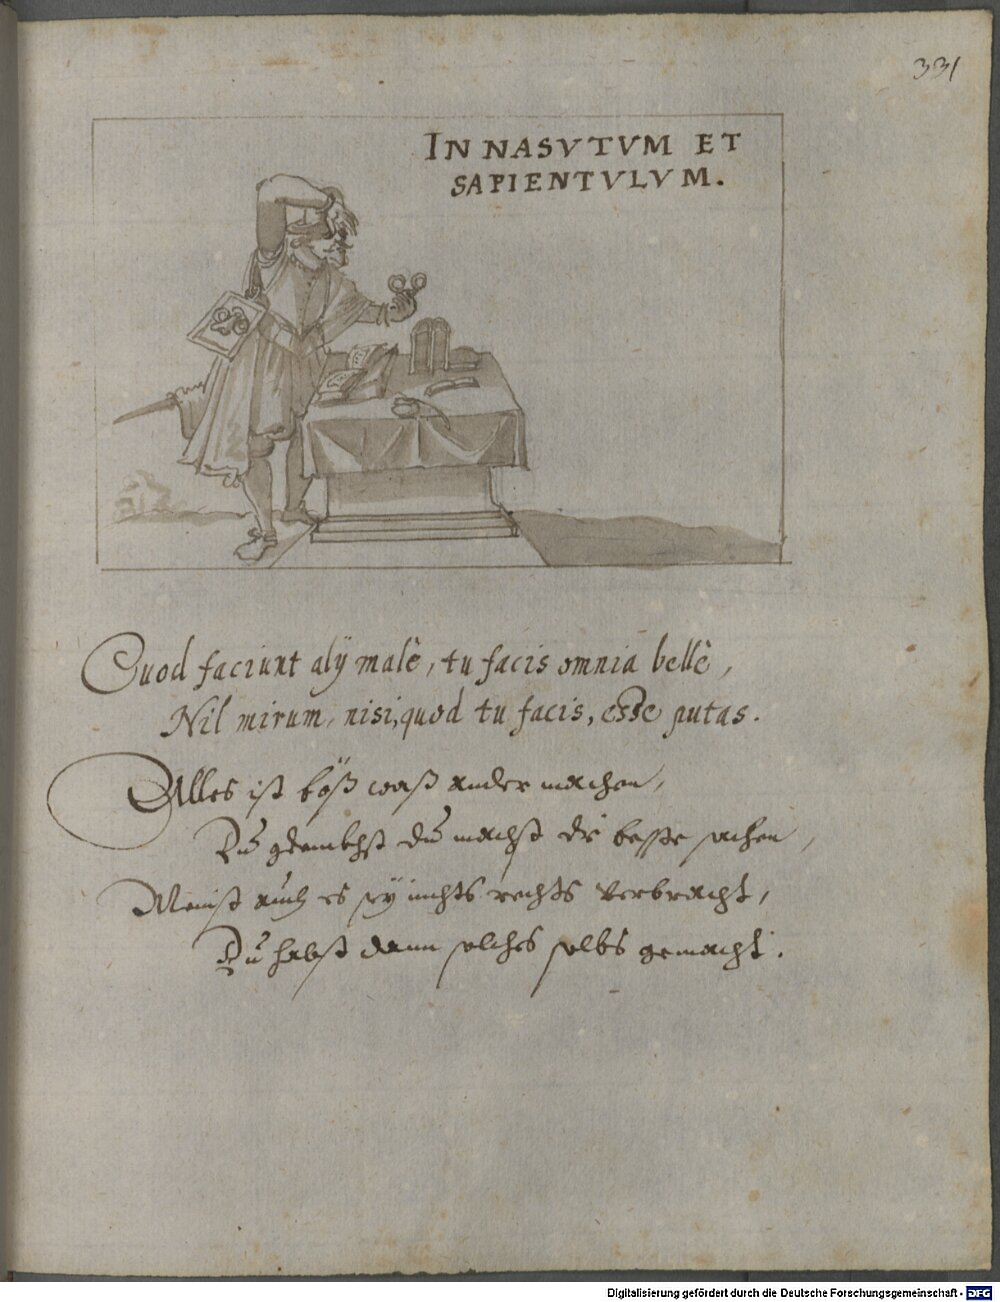 331
IN NASVTVM ET
SAPIENTVLVM.
Quod faciunt alÿ malè, tu facis omnia bellè,
Nil mirum, nisi, quod tu facis, esse putas.
Alles ist böß waß ander machen,
Du gdenckhst du machst die beste sachen,
Meinst auch es seÿ nichts rechts verbracht,
Du habst dann solches selbs gemacht.
Digitalisierung gefördert durch die Deutsche Forschungsgemeinschaft - DFG